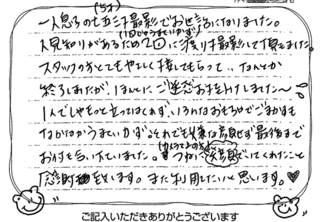 (5才)
一人息子の七五三撮影でお世話になりました。
(1回じゃうまくいかず)
人見知りがあるため2回に渡り撮影して頂きました
スタッフの方とてもやさしく接してもらって、なんとか
終了しましたが、ほんとにご迷惑おかけしました〜
1人でしゃもっと立ってはくれず、いろんなおもちゃでごまかすも
なかなかうまくいかず。それでも笑顔は忘れず最後まで
お付き合い下さいました。すてきな笑顔でいてくれたこと
感謝します。また利用したいと思います。♥
ご記入いただきありがとうございます